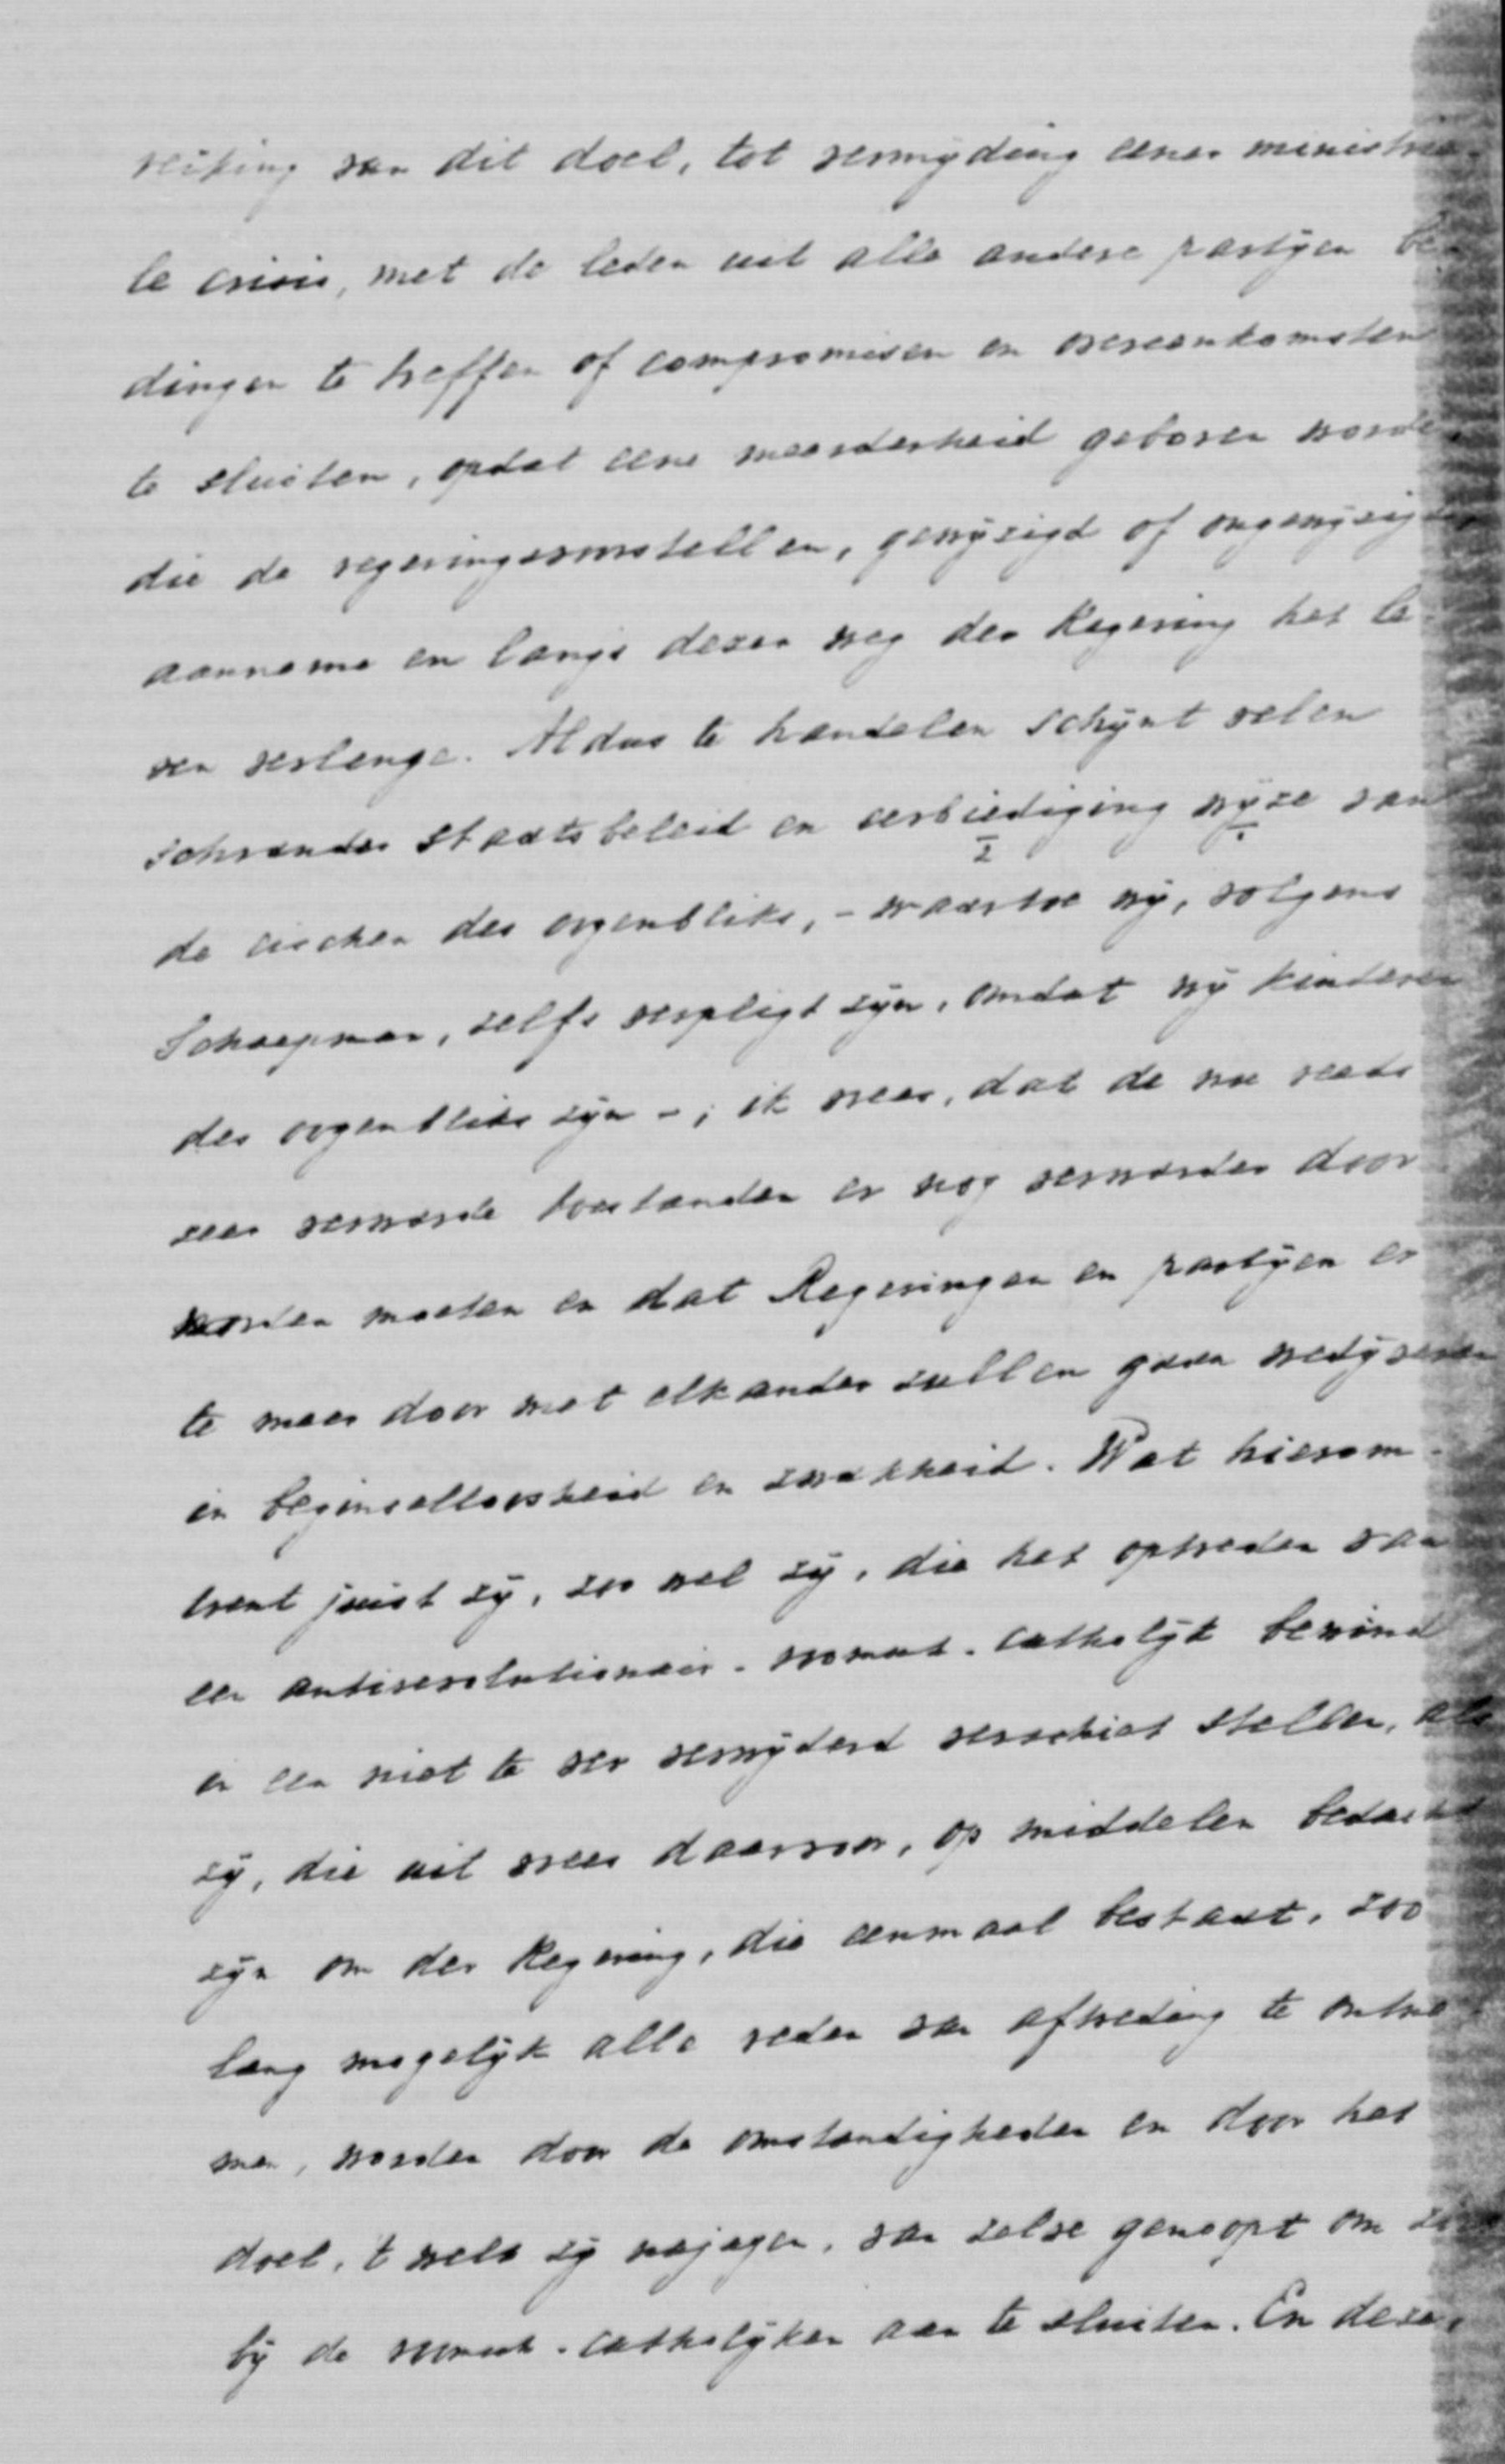 reiking van dit doel, tot vermyding eener ministrie-
le crisis, met de leden uit alle andere partyen be-
dingen te treffen of compromisen en overeenkomsten
te sluiten, opdat eene meerderheid geboren worde,
die de regeringsvoorstellen, gewyzigd of ongewyzigd,
aanneme en langs dezen weg der Regering het le-
ven verlenge. Aldus te handelen schynt velen
schrander staatsbeleid en eerbiediging wyze van
de eischen des oogenbliks, - waartoe wy, volgens
Schaepman, zelfs verpligt zyn, omdat wy kinderen
des oogenbliks zyn -; ik vrees, dat de nu reeds
zeer verwarde toestanden er nog verwarder door
worden moeten en dat Regeringen en partyen er
te meer door met elkander zullen gaan wedyveren
in beginselloosheid en zwakheid. Wat hierom-
trent juist zy, zoo wel zy, die het optreden van
een antirevolutionair-roomsch-catholyk bewind
in een niet te ver verwyderd verschiet stellen, als
zy, die uit vrees daarvoor, op middelen bedacht
zyn om der Regering, die eenmaal bestaat, zoo
lang mogelyk alle reden van aftreding te ontne-
men, worden door de omstandigheden en door het
doel, 't welk zy najagen, van zelve genoopt om zich
by de roomsch-catholyken aan te sluiten. En deze,